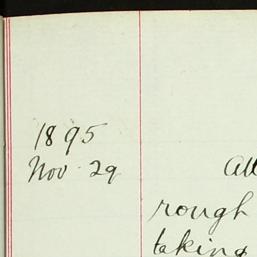 1895
Nov. 29
rough
taking